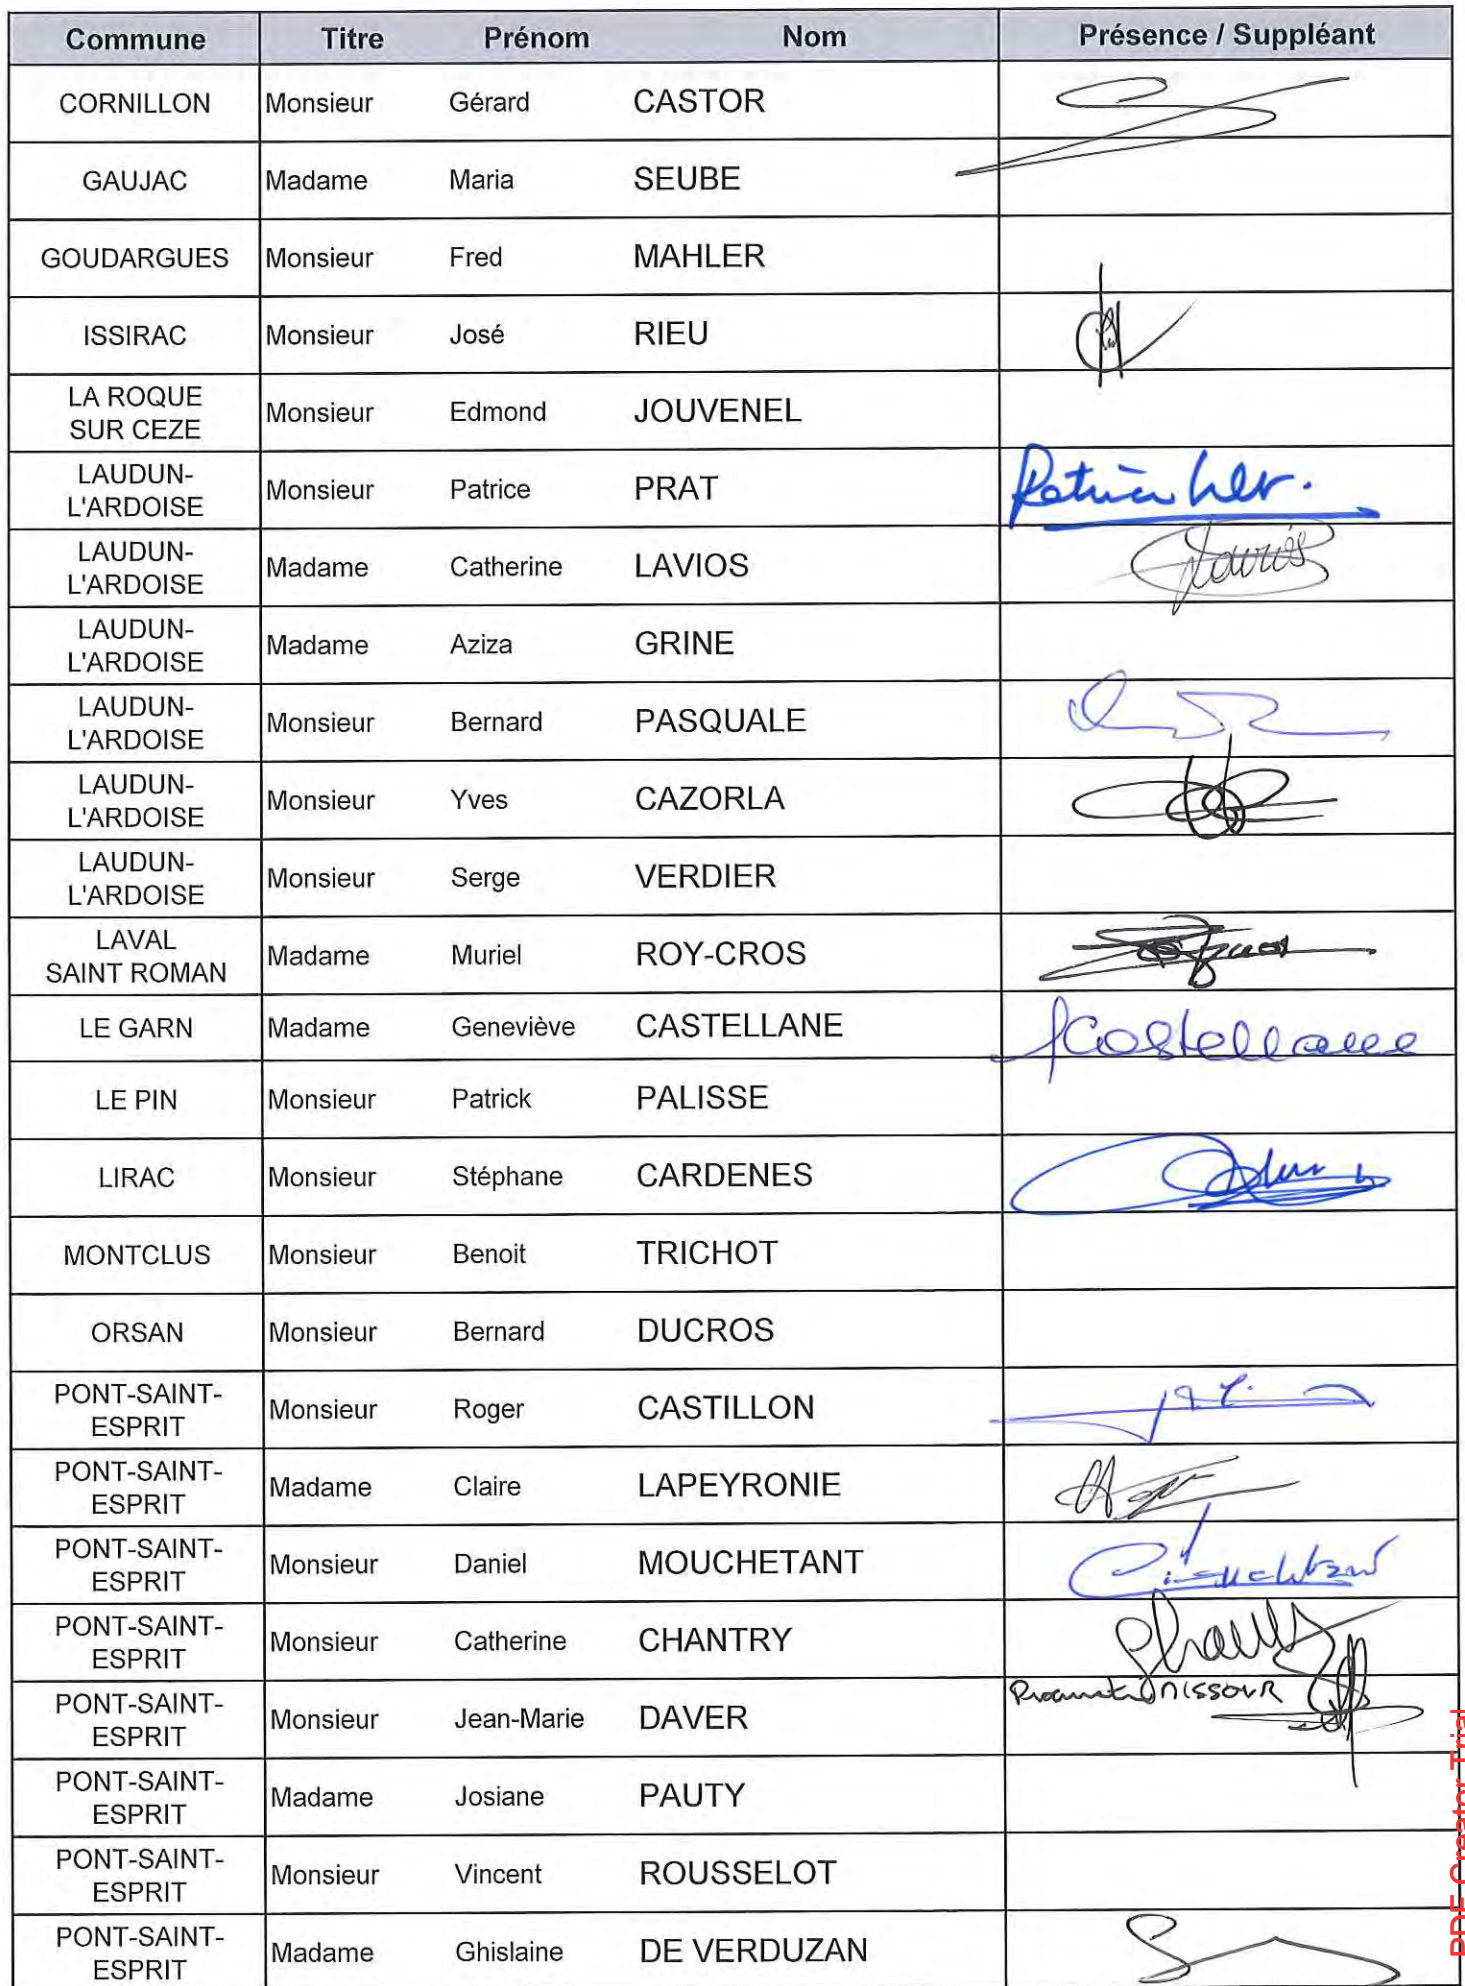 Commune Titre Prénom Nom Présence / Suppléant
CORNILLON Monsieur Gérard CASTOR
GAUJAC Madame Maria SEUBE
GOUDARGUES Monsieur Fred MAHLER
ISSIRAC Monsieur José RIEU
LA ROQUE
SUR CEZE Monsieur Edmond JOUVENEL
LAUDUN-
L'ARDOISE Monsieur Patrice PRAT
LAUDUN-
L'ARDOISE Madame Catherine LAVIOS
LAUDUN-
L'ARDOISE Madame Aziza GRINE
LAUDUN-
L'ARDOISE Monsieur Bernard PASQUALE
LAUDUN-
L'ARDOISE Monsieur Yves CAZORLA
LAUDUN-
L'ARDOISE Monsieur Serge VERDIER
LAVAL
SAINT ROMAN Madame Muriel ROY-CROS
LE GARN Madame Geneviève CASTELLANE Castellane
LE PIN Monsieur Patrick PALISSE
LIRAC Monsieur Stéphane CARDENES
MONTCLUS Monsieur Benoit TRICHOT
ORSAN Monsieur Bernard DUCROS
PONT-SAINT-
ESPRIT Monsieur Roger CASTILLON
PONT-SAINT-
ESPRIT Madame Claire LAPEYRONIE
PONT-SAINT-
ESPRIT Monsieur Daniel MOUCHETANT
PONT-SAINT-
ESPRIT Monsieur Catherine CHANTRY
PONT-SAINT-
ESPRIT Monsieur Jean-Marie DAVER NISSOUR
PONT-SAINT-
ESPRIT Madame Josiane PAUTY
PONT-SAINT-
ESPRIT Monsieur Vincent ROUSSELOT
PONT-SAINT-
ESPRIT Madame Ghislaine DE VERDUZAN
PDF Creator Trial